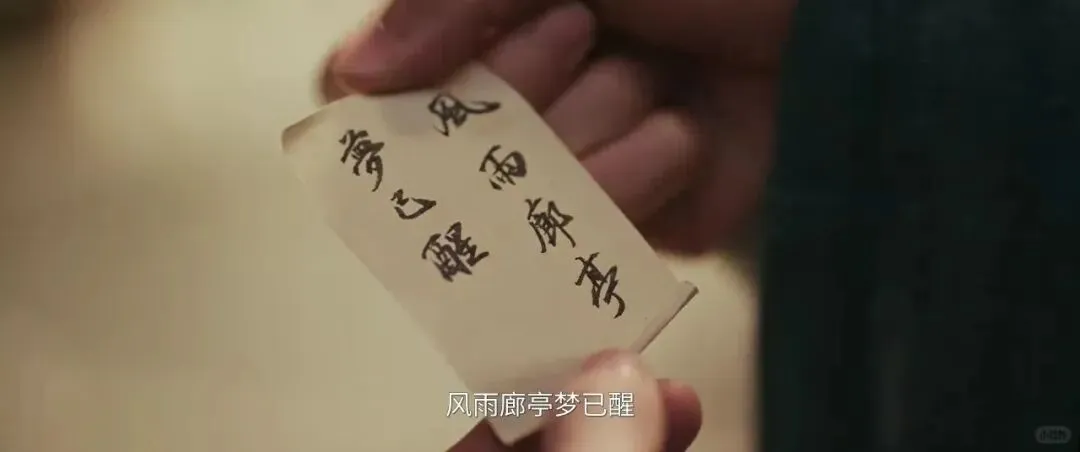 風雨廊亭
夢已醒
风雨廊亭梦已醒